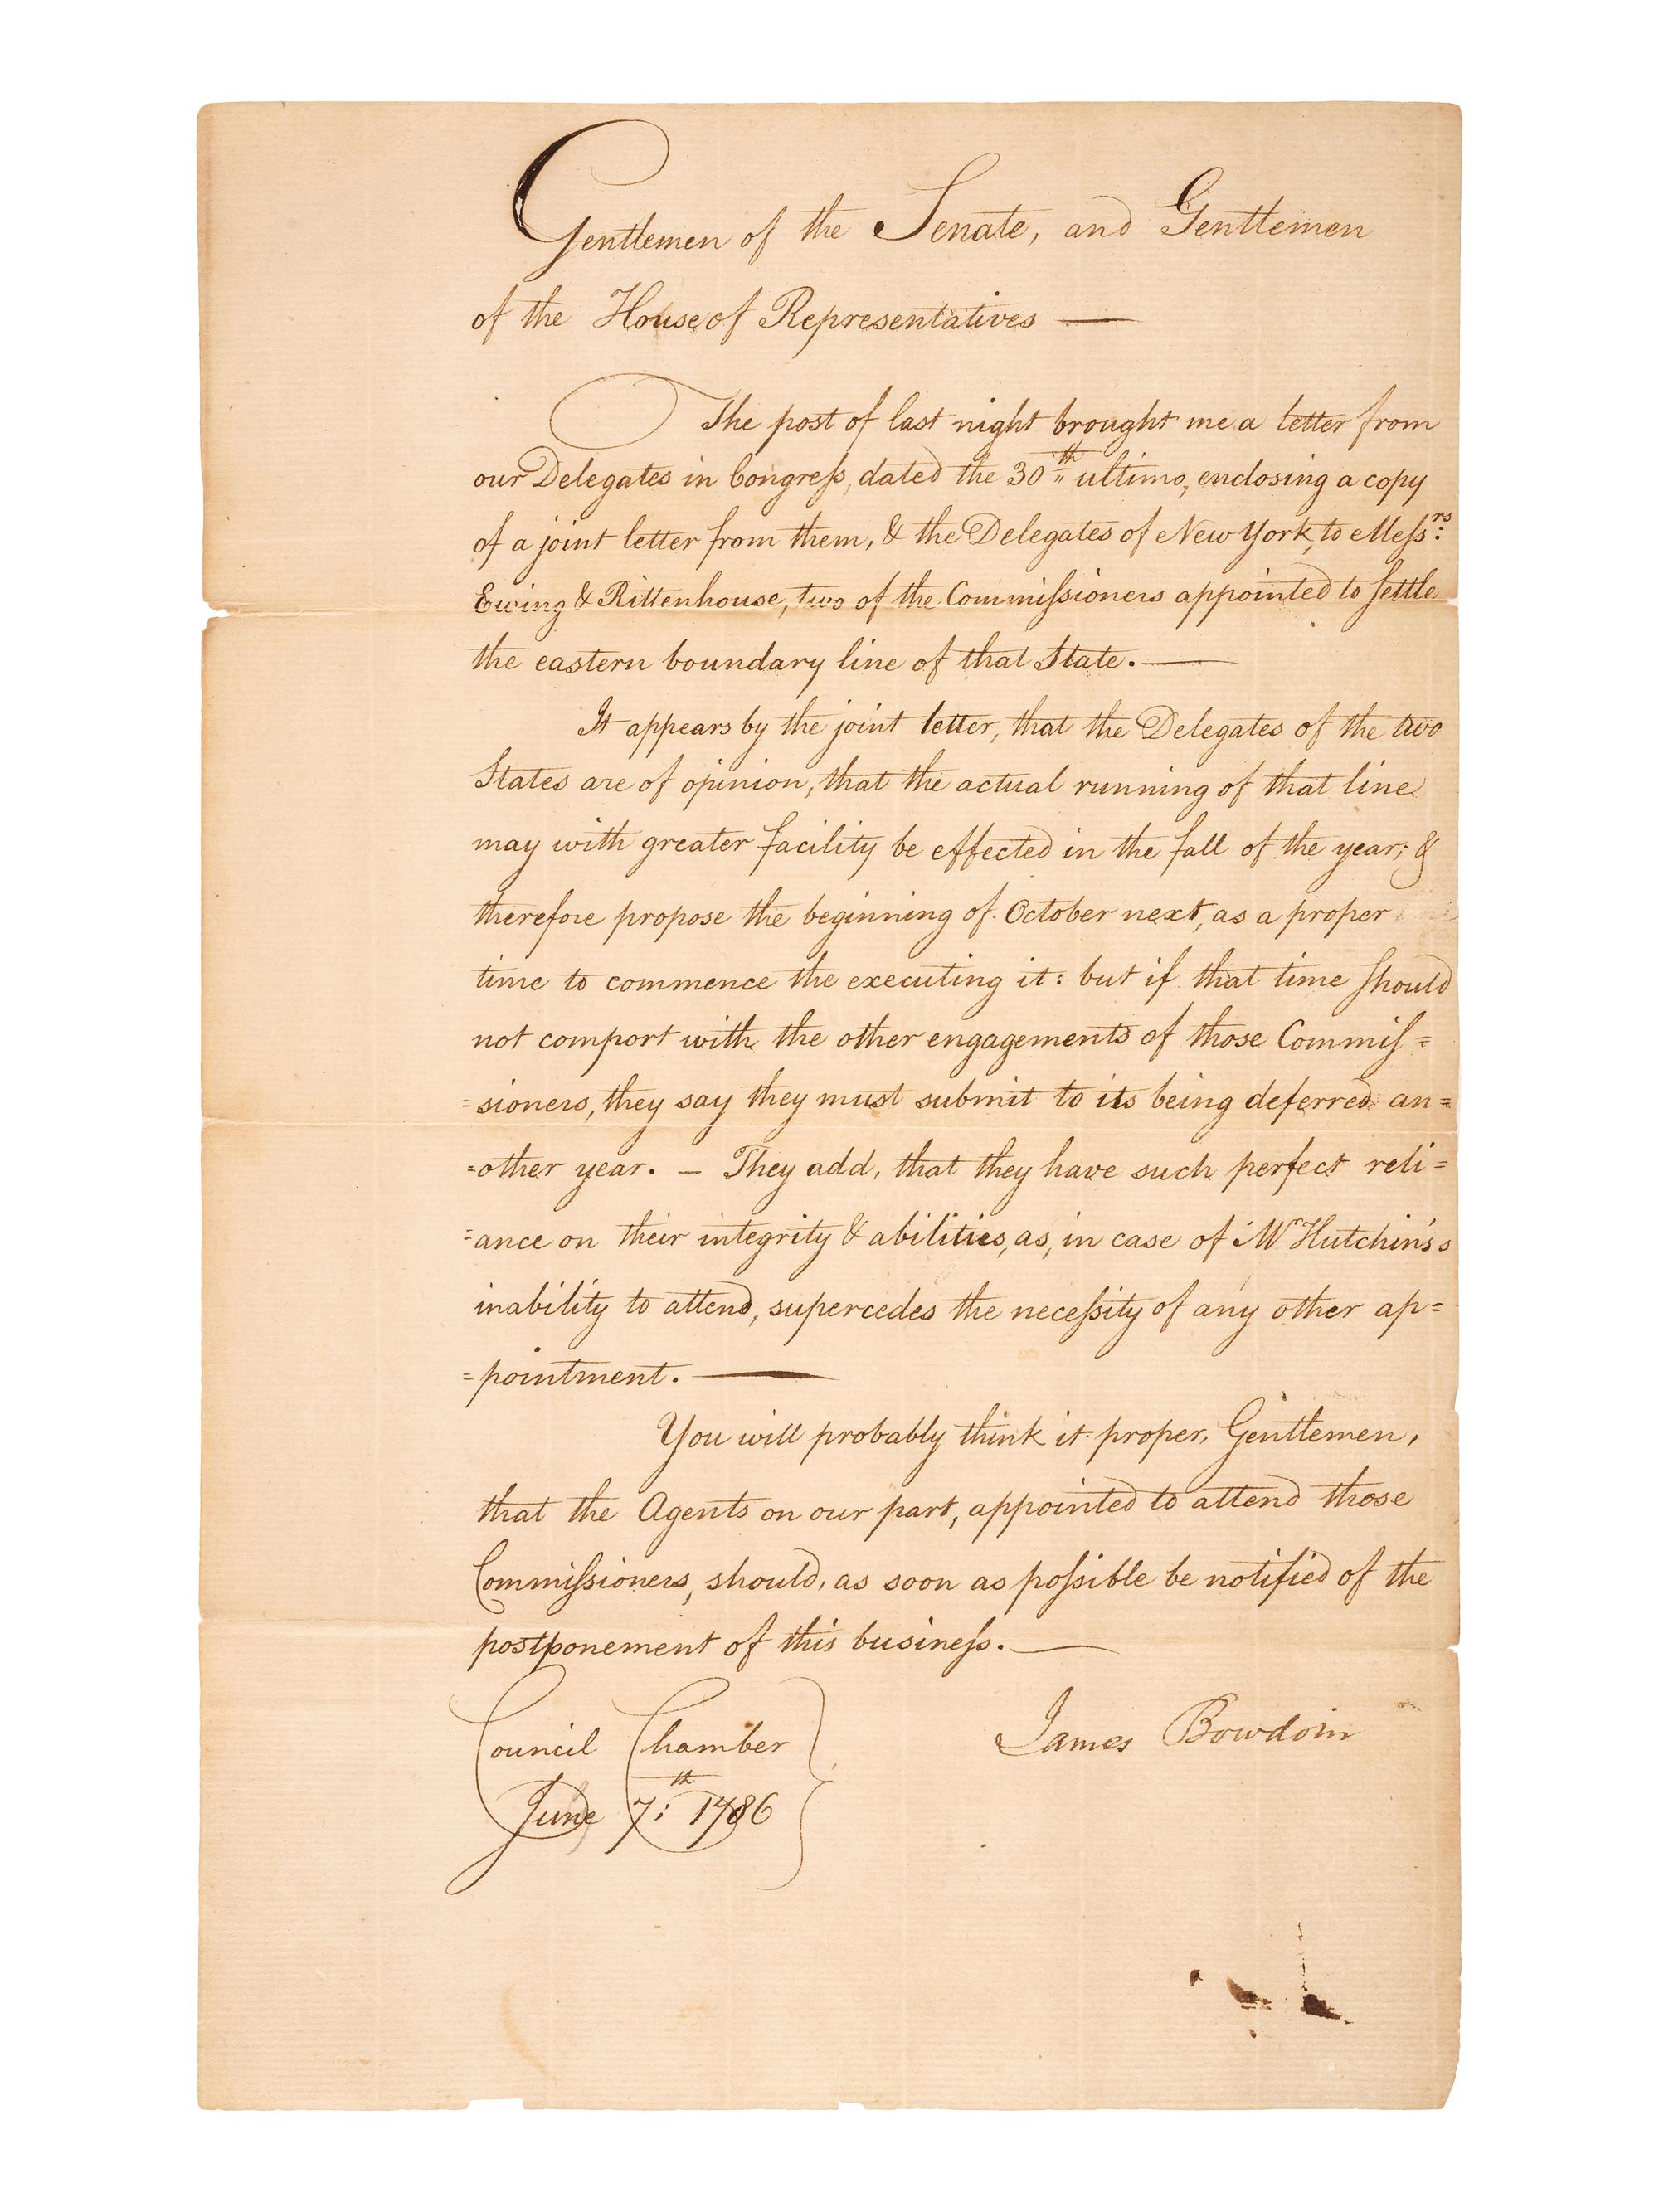 Gentlemen of the Senate, and Gentlemen
of the House of Representatives —
The post of last night brought me a letter from
our Delegates in Congreſs, dated the 30th ultimo, enclosing a copy
of a joint letter from them, & the Delegates of New York, to Meſsrs:
Ewing & Rittenhouse, two of the Commiſsioners appointed to ſettle
the eastern boundary line of that State. —
It appears by the joint letter, that the Delegates of the two
States are of opinion, that the actual running of that line
may with greater facility be effected in the fall of the year; &
therefore propose the beginning of October next, as a proper
time to commence the executing it: but if that time ſhould
not comport with the other engagements of those Commiſ=
=sioners, they say they must submit to its being deferred an=
=other year. — They add, that they have such perfect reli=
=ance on their integrity & abilities, as, in case of Mr Hutchins's
inability to attend, supercedes the neceſsity of any other ap=
=pointment. —
You will probably think it proper, Gentlemen,
that the Agents on our part, appointed to attend those
Commiſsioners, should, as soon as poſsible be notified of the
postponement of this busineſs. —
Council Chamber
James Bowdoin
June 7th: 1786